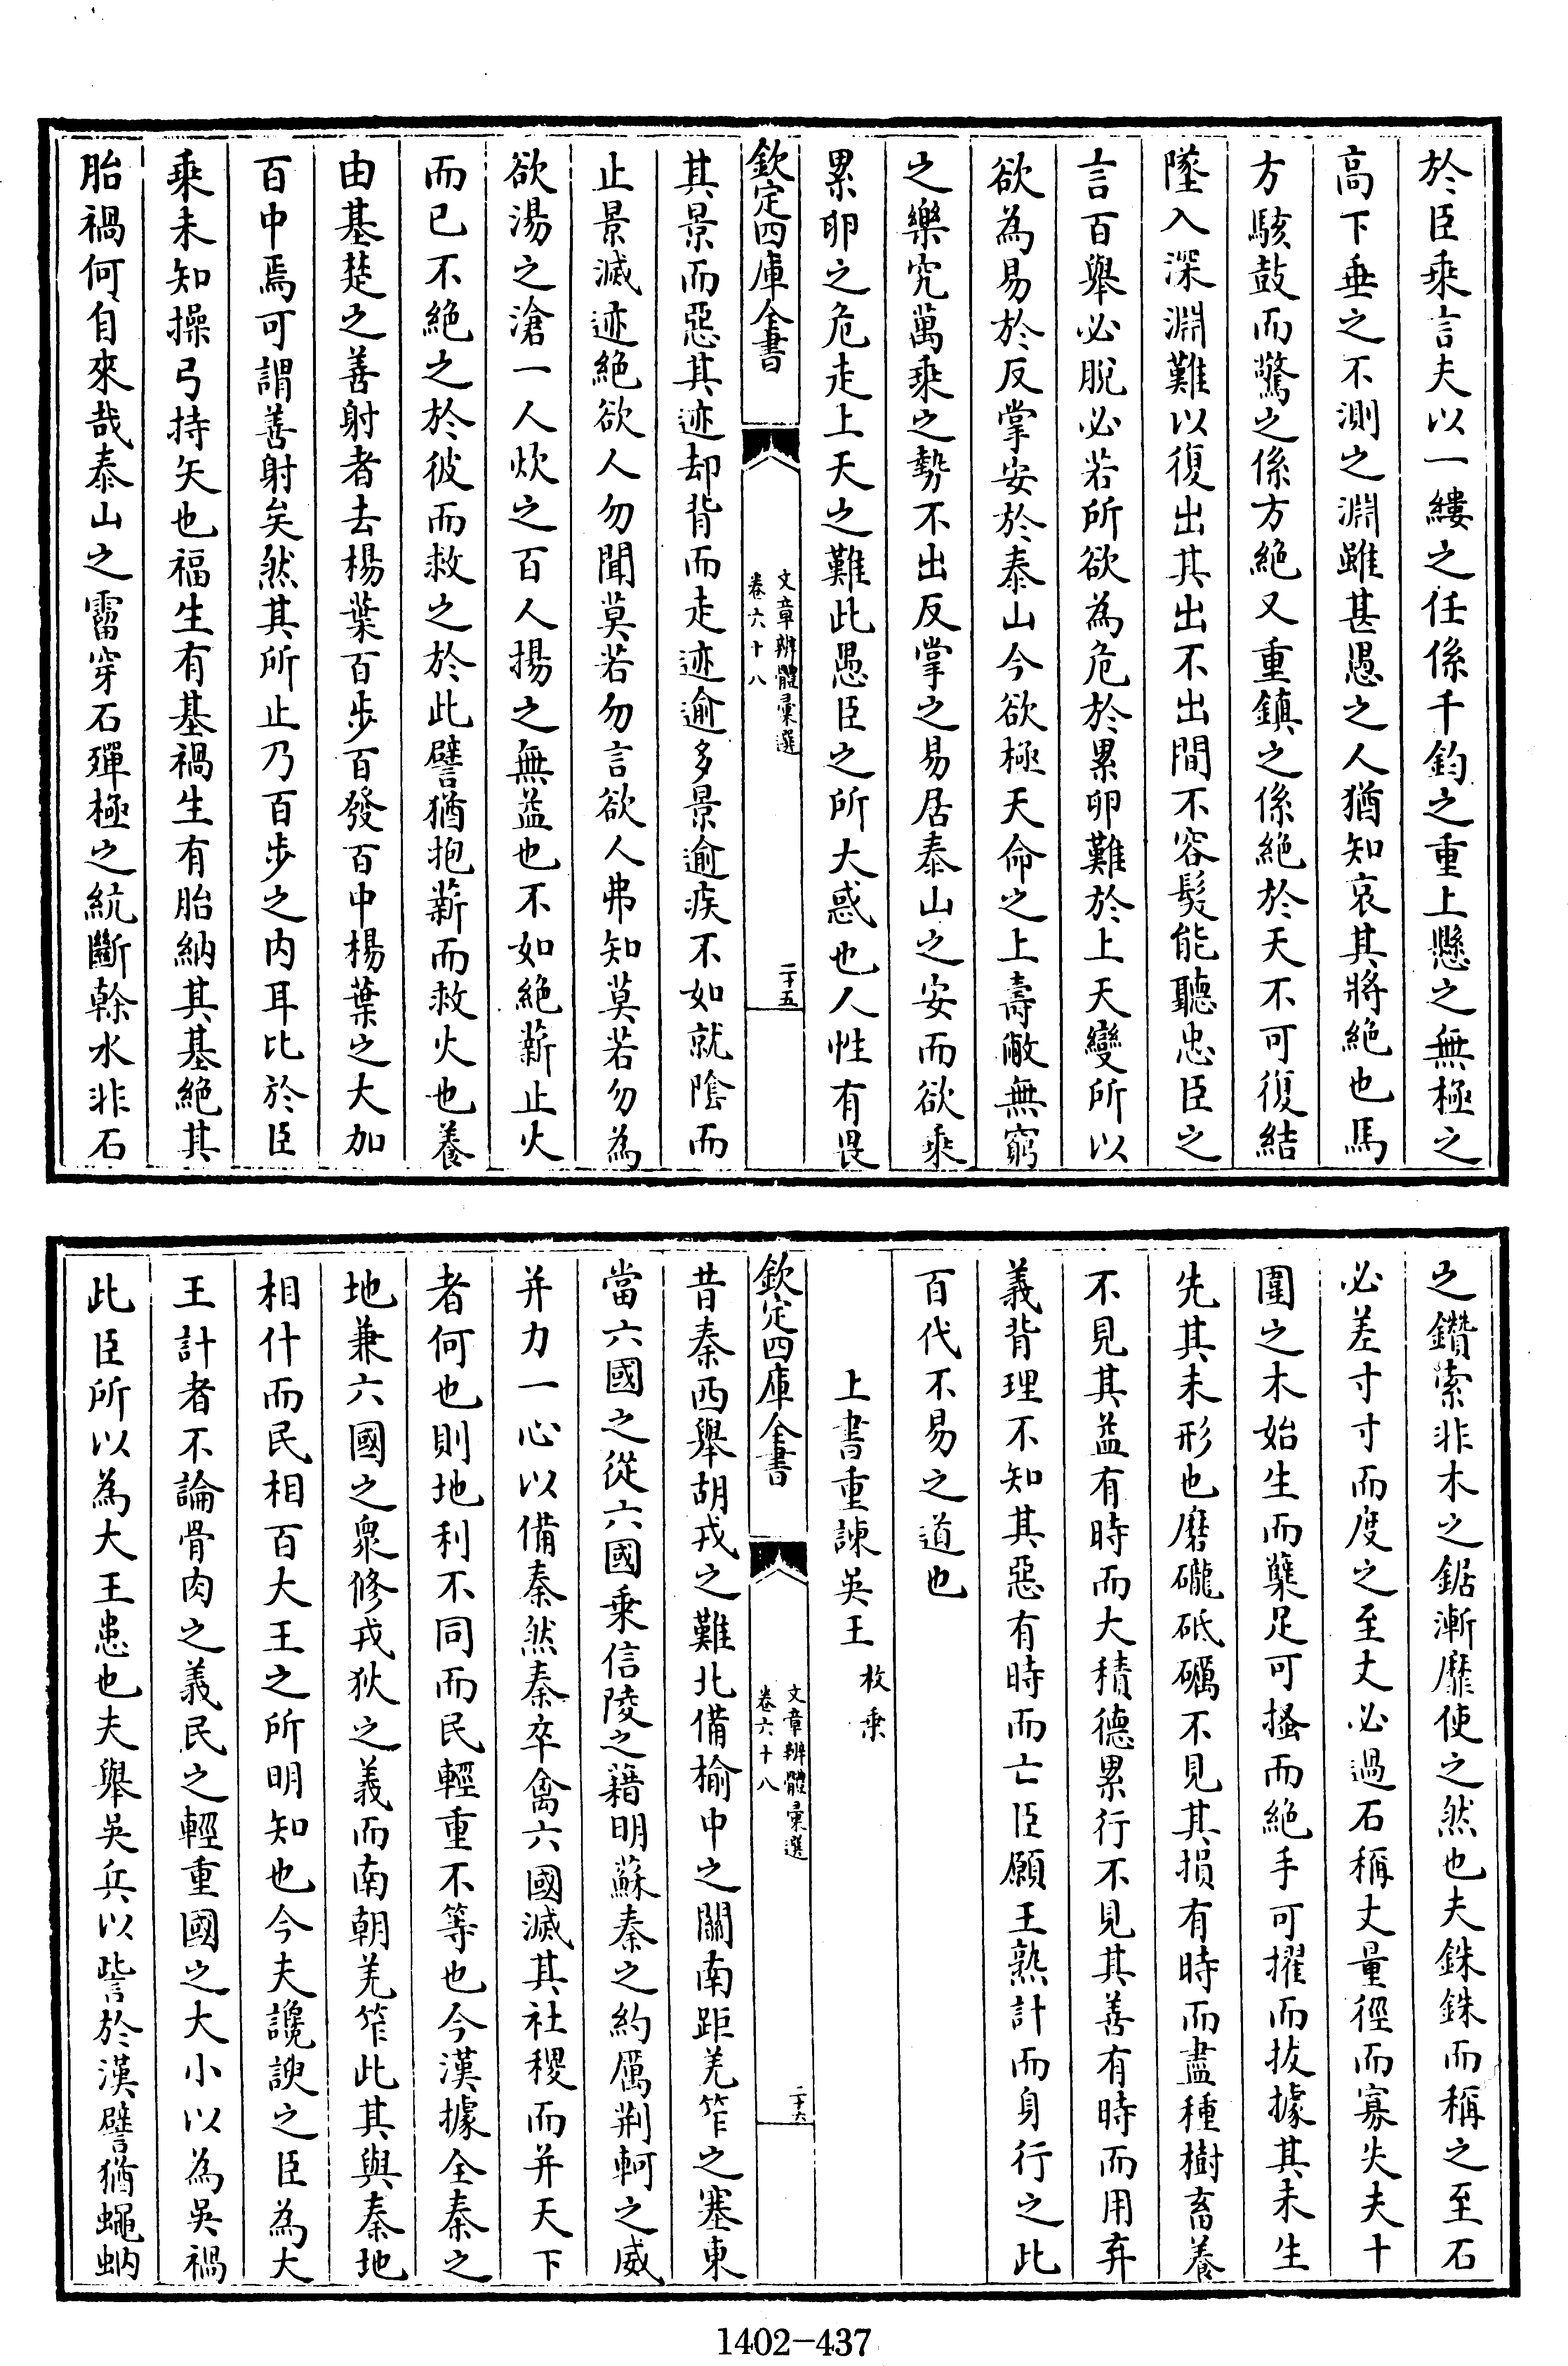 於臣乘言夫以一縷之任係千鈞之重上懸之無極之
高下垂之不測之淵雖甚愚之人猶知哀其將絶也馬
方駭鼓而驚之係方絶又重鎮之係絶於天不可復結
墜入深淵難以復出其出不出間不容髮能聽忠臣之
言百舉必脫必若所欲為危於累卵難於上天變所以
欲為易於反掌安於泰山今欲極天命之上壽敝無窮
之樂究萬乘之勢不出反掌之易居泰山之安而欲乘
累卵之危走上天之難此愚臣之所大惑也人性有畏
欽定四庫全書
文章辨體彙選
卷六十八
二十五
其景而惡其迹却背而走迹逾多景逾疾不如就陰而
止景滅迹絶欲人勿聞莫若勿言欲人弗知莫若勿為
欲湯之滄一人炊之百人揚之無益也不如絶薪止火
而已不絶之於彼而救之於此譬猶抱薪而救火也養
由基楚之善射者去楊葉百步百發百中楊葉之大加
百中焉可謂善射矣然其所止乃百步之內耳比於臣
乘未知操弓持矢也福生有基禍生有胎納其基絶其
胎禍何自來哉泰山之霤穿石殫極之統斷幹水非石
之鑽索非木之鋸漸靡使之然也夫銖銖而稱之至石
必差寸寸而度之至丈必過石稱丈量徑而寡失夫十
圍之木始生而蘖足可搔而絶手可擢而拔據其未生
先其未形也磨礲砥礪不見其損有時而盡種樹畜養
不見其益有時而大積德累行不見其善有時而用弃
義背理不知其惡有時而亡臣願王熟計而身行之此
百代不易之道也
上書重諫吳王　枚乘
欽定四庫全書
文章辨體彙選
卷六十八
二十六
昔秦西舉胡戎之難北備榆中之關南距羌笮之塞東
當六國之從六國乗信陵之藉明蘇秦之約厲荆軻之威
并力一心以備秦然秦卒禽六國滅其社稷而并天下
者何也則地利不同而民輕重不等也今漢據全秦之
地兼六國之衆修戎狄之義而南朝羌笮此其與秦地
相什而民相百大王之所明知也今夫讒諛之臣為大
王計者不論骨肉之義民之輕重國之大小以為吳禍
此臣所以為大王患也夫舉吳兵以訾於漢譬猶蠅蚋
1402-437